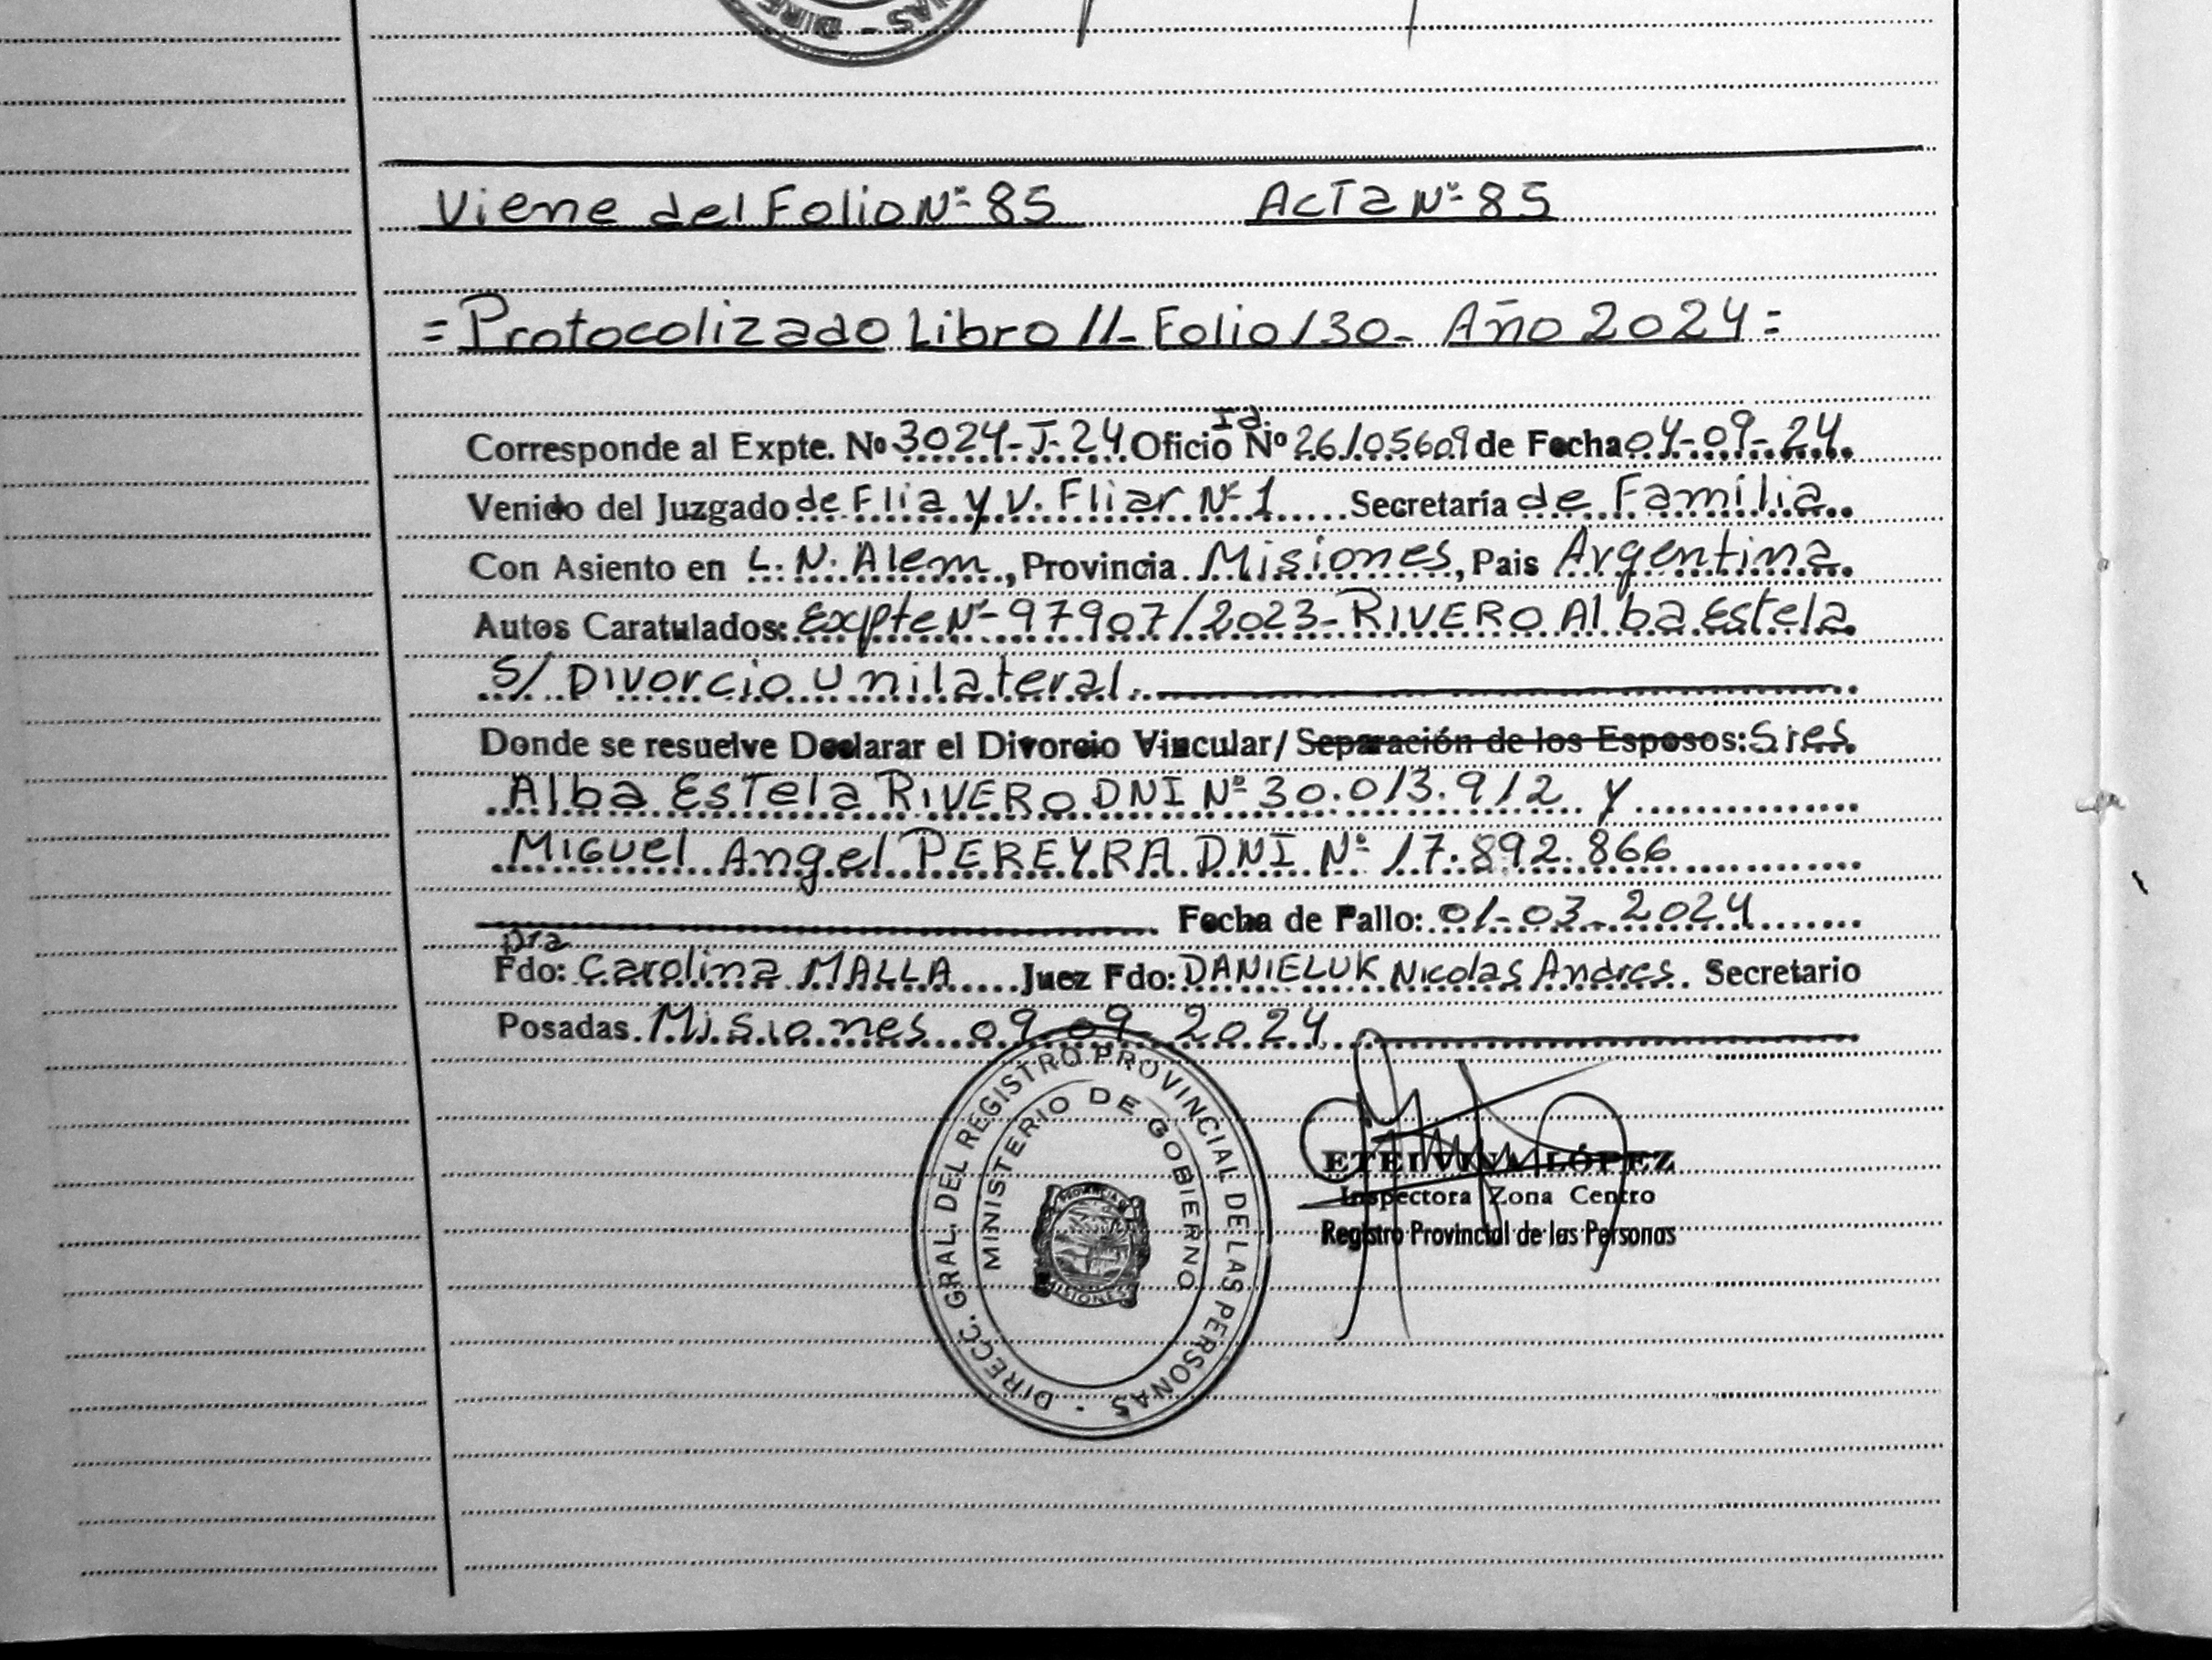 NAS - DIRE
Viene del Folio Nº 85 Acta Nº 85
= Protocolizado Libro 11- Folio 130- Año 2024 =
Id.
Corresponde al Expte. Nº 3024-J-24 Oficio Nº 26105609 de Fecha 04-09-24.
Venido del Juzgado de Flia y V. Fliar Nº 1 Secretaría de Familia
Con Asiento en L. N. Alem, Provincia Misiones, Pais Argentina
Autos Caratulados: Expte Nº 97907/2023- RIVERO Alba Estela
S/ Divorcio Unilateral.
Donde se resuelve Declarar el Divorcio Vincular/ Separación de los Esposos: Sres
Alba Estela RIVERO DNI Nº 30.013.912 y
Miguel Angel PEREYRA DNI Nº 17.892.866
Fecha de Fallo: 01-03-2024
Dra
Fdo: Carolina MALLA Juez Fdo: DANIELUK Nicolas Andres. Secretario
Posadas. Misiones 09-09-2024
DIRECC. GRAL. DEL REGISTRO PROVINCIAL DE LAS PERSONAS -
MINISTERIO DE GOBIERNO
PROVINCIA
MISIONES
ETELVINA LÓPEZ
Inspectora Zona Centro
Registro Provincial de las Personas